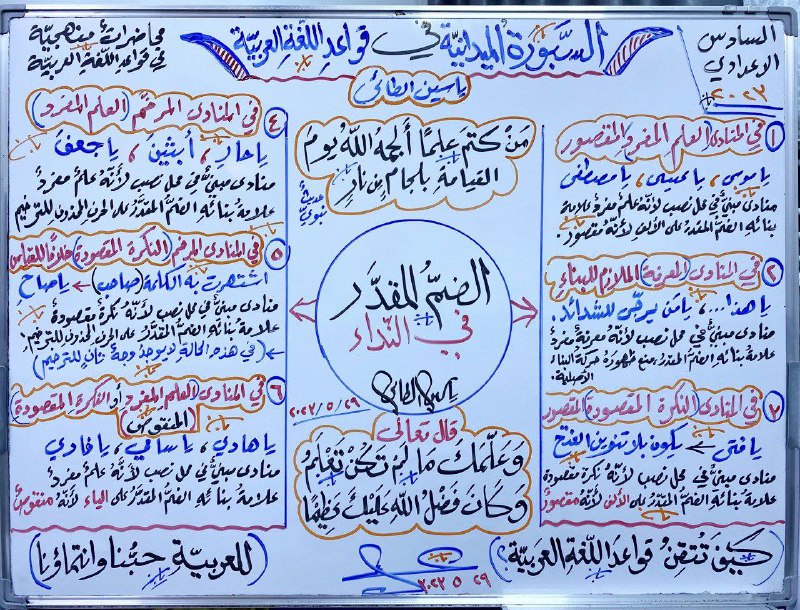 السادس
الإعدادي
٢٠٢٣
السبّورة الميدانيّة في قواعد اللغة العربيّة
ياسين الطائي
محاضرات منهجيّة
في قواعد اللغة العربية
مَنْ كتمَ علمًا ألجمهُ اللهُ يومَ
القيامةِ بلجامٍ مِن نارٍ
حديث نبوي
① في المنادى (العلم المفرد) المقصور
يا موسى ، يا عيسى ، يا مصطفى
منادى مبنيٌّ في محل نصب لأنّهُ علمٌ مفردٌ علامة
بنائه الضمّ المقدّر على الألف لأنّهُ مقصورٌ.
② في المنادى (المعرفة) الملازم للبناء
يا هذا... ، يا مَن يُرجّى للشدائد .
منادى مبنيٌّ في محل نصب لأنّهُ معرفةٌ مفردٌ
علامة بنائه الضمّ المقدّر، منع ظهورَهُ حركة البناء
الأصلية.
٣ في المنادى (النكرة المقصودة) المقصور
يا فتى ← يكون بلا تنوين الفتح
منادى مبنيٌّ في محل نصب لأنّهُ نكرةٌ مقصودة
علامة بنائه الضمُّ المقدّر على الألف لأنّهُ مقصورٌ
الضمُّ المقدَّر
في النّداء
ياسين الطائي
٢٠٢٣/٥/٢٩
④ في المنادى المرخّم (العلم المفرد)
يا حارِ ، أبثينَ ، يا جعفُ
منادى مبنيٌّ في محل نصب لأنّهُ علمٌ مفردٌ
علامة بنائه الضمُّ المقدّرُ على الحرف المحذوف للترخيم
⑤ في المنادى المرخم (النكرة المقصودة) خلافًا للقياس
اشتهرت به الكلمة (صاحب) ← يا صاحِ
منادى مبنيٌّ في محل نصب لأنّهُ نكرةٌ مقصودةٌ
علامة بنائه الضمُّ المقدّرُ على الحرف المحذوف للترخيم.
← (في هذه الحالة لا يوجد وجهٌ ثانٍ للترخيم)
⑥ في المنادى (العلم المفرد أو النكرة المقصودة)
(المنقوص)
يا هادي ، يا سامي ، يا غادي
منادى مبنيٌّ في محل نصب لأنّهُ علمٌ مفردٌ
علامةُ بنائه الضمُّ المقدّرُ على الياء لأنّهُ منقوصٌ
قال تعالى
وَعَلَّمَكَ مَا لَمْ تَكُنْ تَعْلَمُ
وَكَانَ فَضْلُ اللهِ عَلَيْكَ عَظِيمًا
(كيفَ تُتقِنُ قواعدَ اللّغةِ العربيّةِ؟)
٢٩ ٥ ٢٠٢٣
(للعربيّةِ حبُّنا وانتماؤنا)